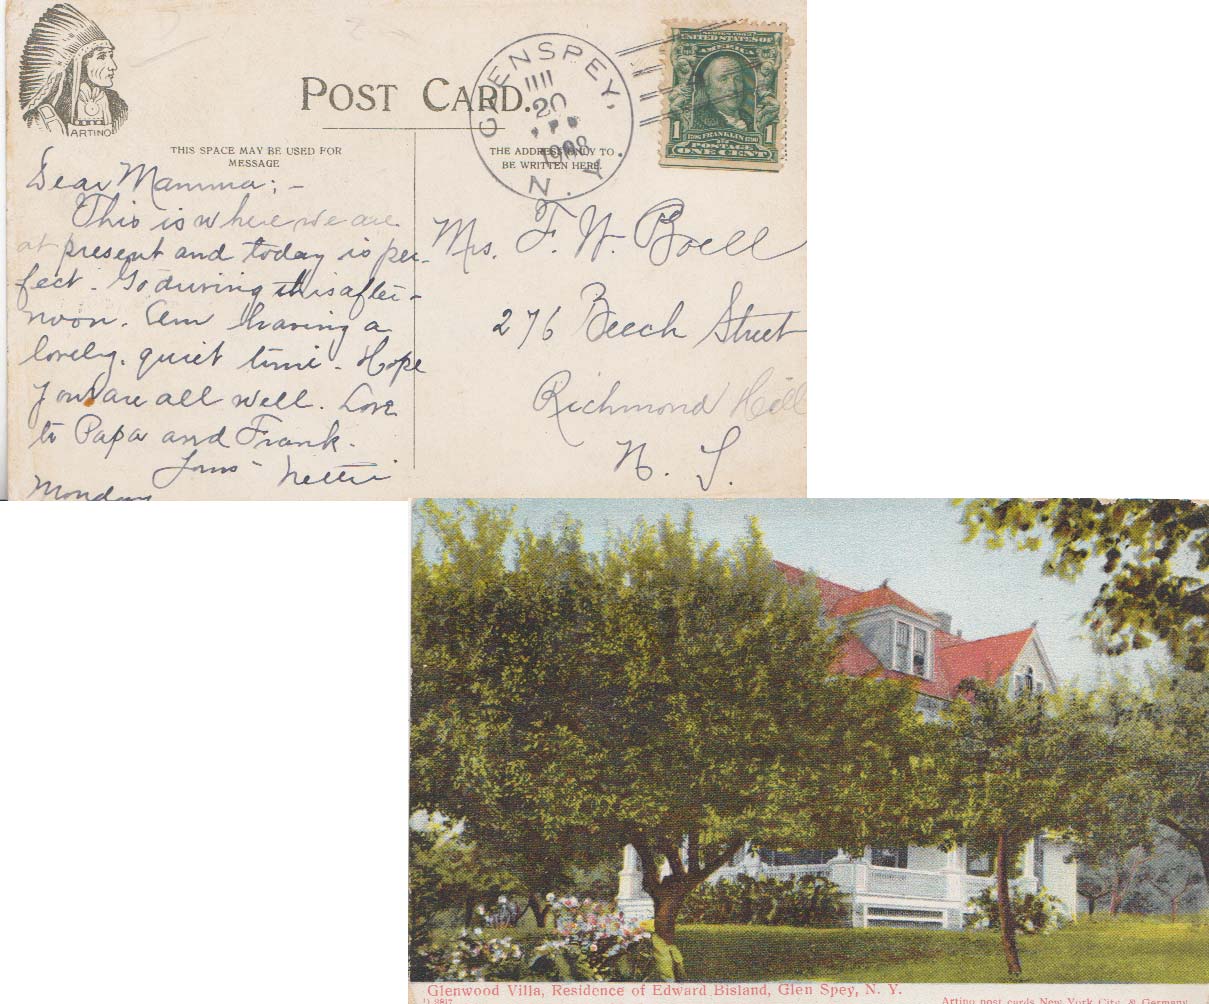 ARTINO
POST CARD.
THIS SPACE MAY BE USED FOR
MESSAGE
THE ADDRESS ONLY TO
BE WRITTEN HERE.
GLENSPEY,
20
1908
N. Y.
SERIES 1902
UNITED STATES OF
AMERICA
1 FRANKLIN 1
POSTAGE
ONE CENT
Dear Mamma; -
This is where we are
at present and today is per-
fect. Go driving this after-
noon. Am having a
lovely, quiet time - Hope
you are all well. Love
to Papa and Frank.
Nettie
Monday
Mrs. F. W. Boell
276 Beech Street
Richmond Hill
Glenwood Villa, Residence of Edward Bisland, Glen Spey, N. Y.
Artino post cards New York City & Germany